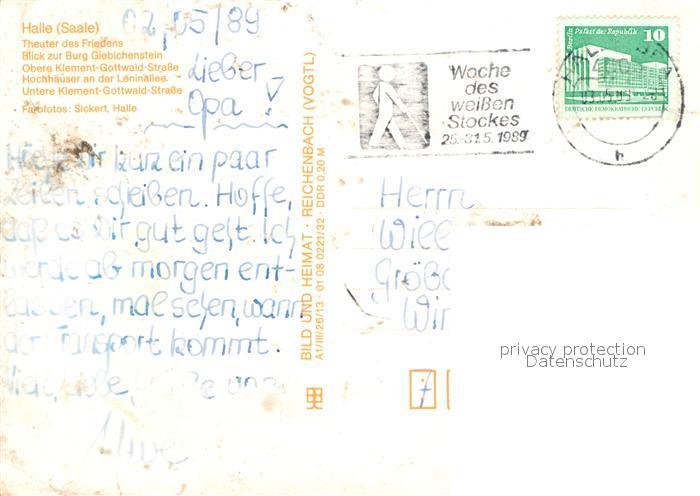 02/05/89
Halle (Saale)
Theater des Friedens
Blick zur Burg Giebichenstein
Obere Klement-Gottwald-Straße
Hochhäuser an der Leninallee
Untere Klement-Gottwald-Straße
Farbfotos: Sickert, Halle
Lieber
Opa!
kurz ein paar
Zeilen schreiben. Hoffe,
daß es Dir gut geht. Ich
werde ab morgen ent-
lassen, mal sehen, wann
der Transport kommt.
Viele, liebe,
Uwe
BILD UND HEIMAT · REICHENBACH (VOGTL)
A1/III/26/13 · 01 08 0221/32 · DDR 0,20 M
Woche
des
weißen
Stockes
25.-31.5.1989
Berlin Palast der Republik
10
DEUTSCHE DEMOKRATISCHE REPUBLIK
h
Herrn
Will
Größ
Win
privacy protection
Datenschutz
7